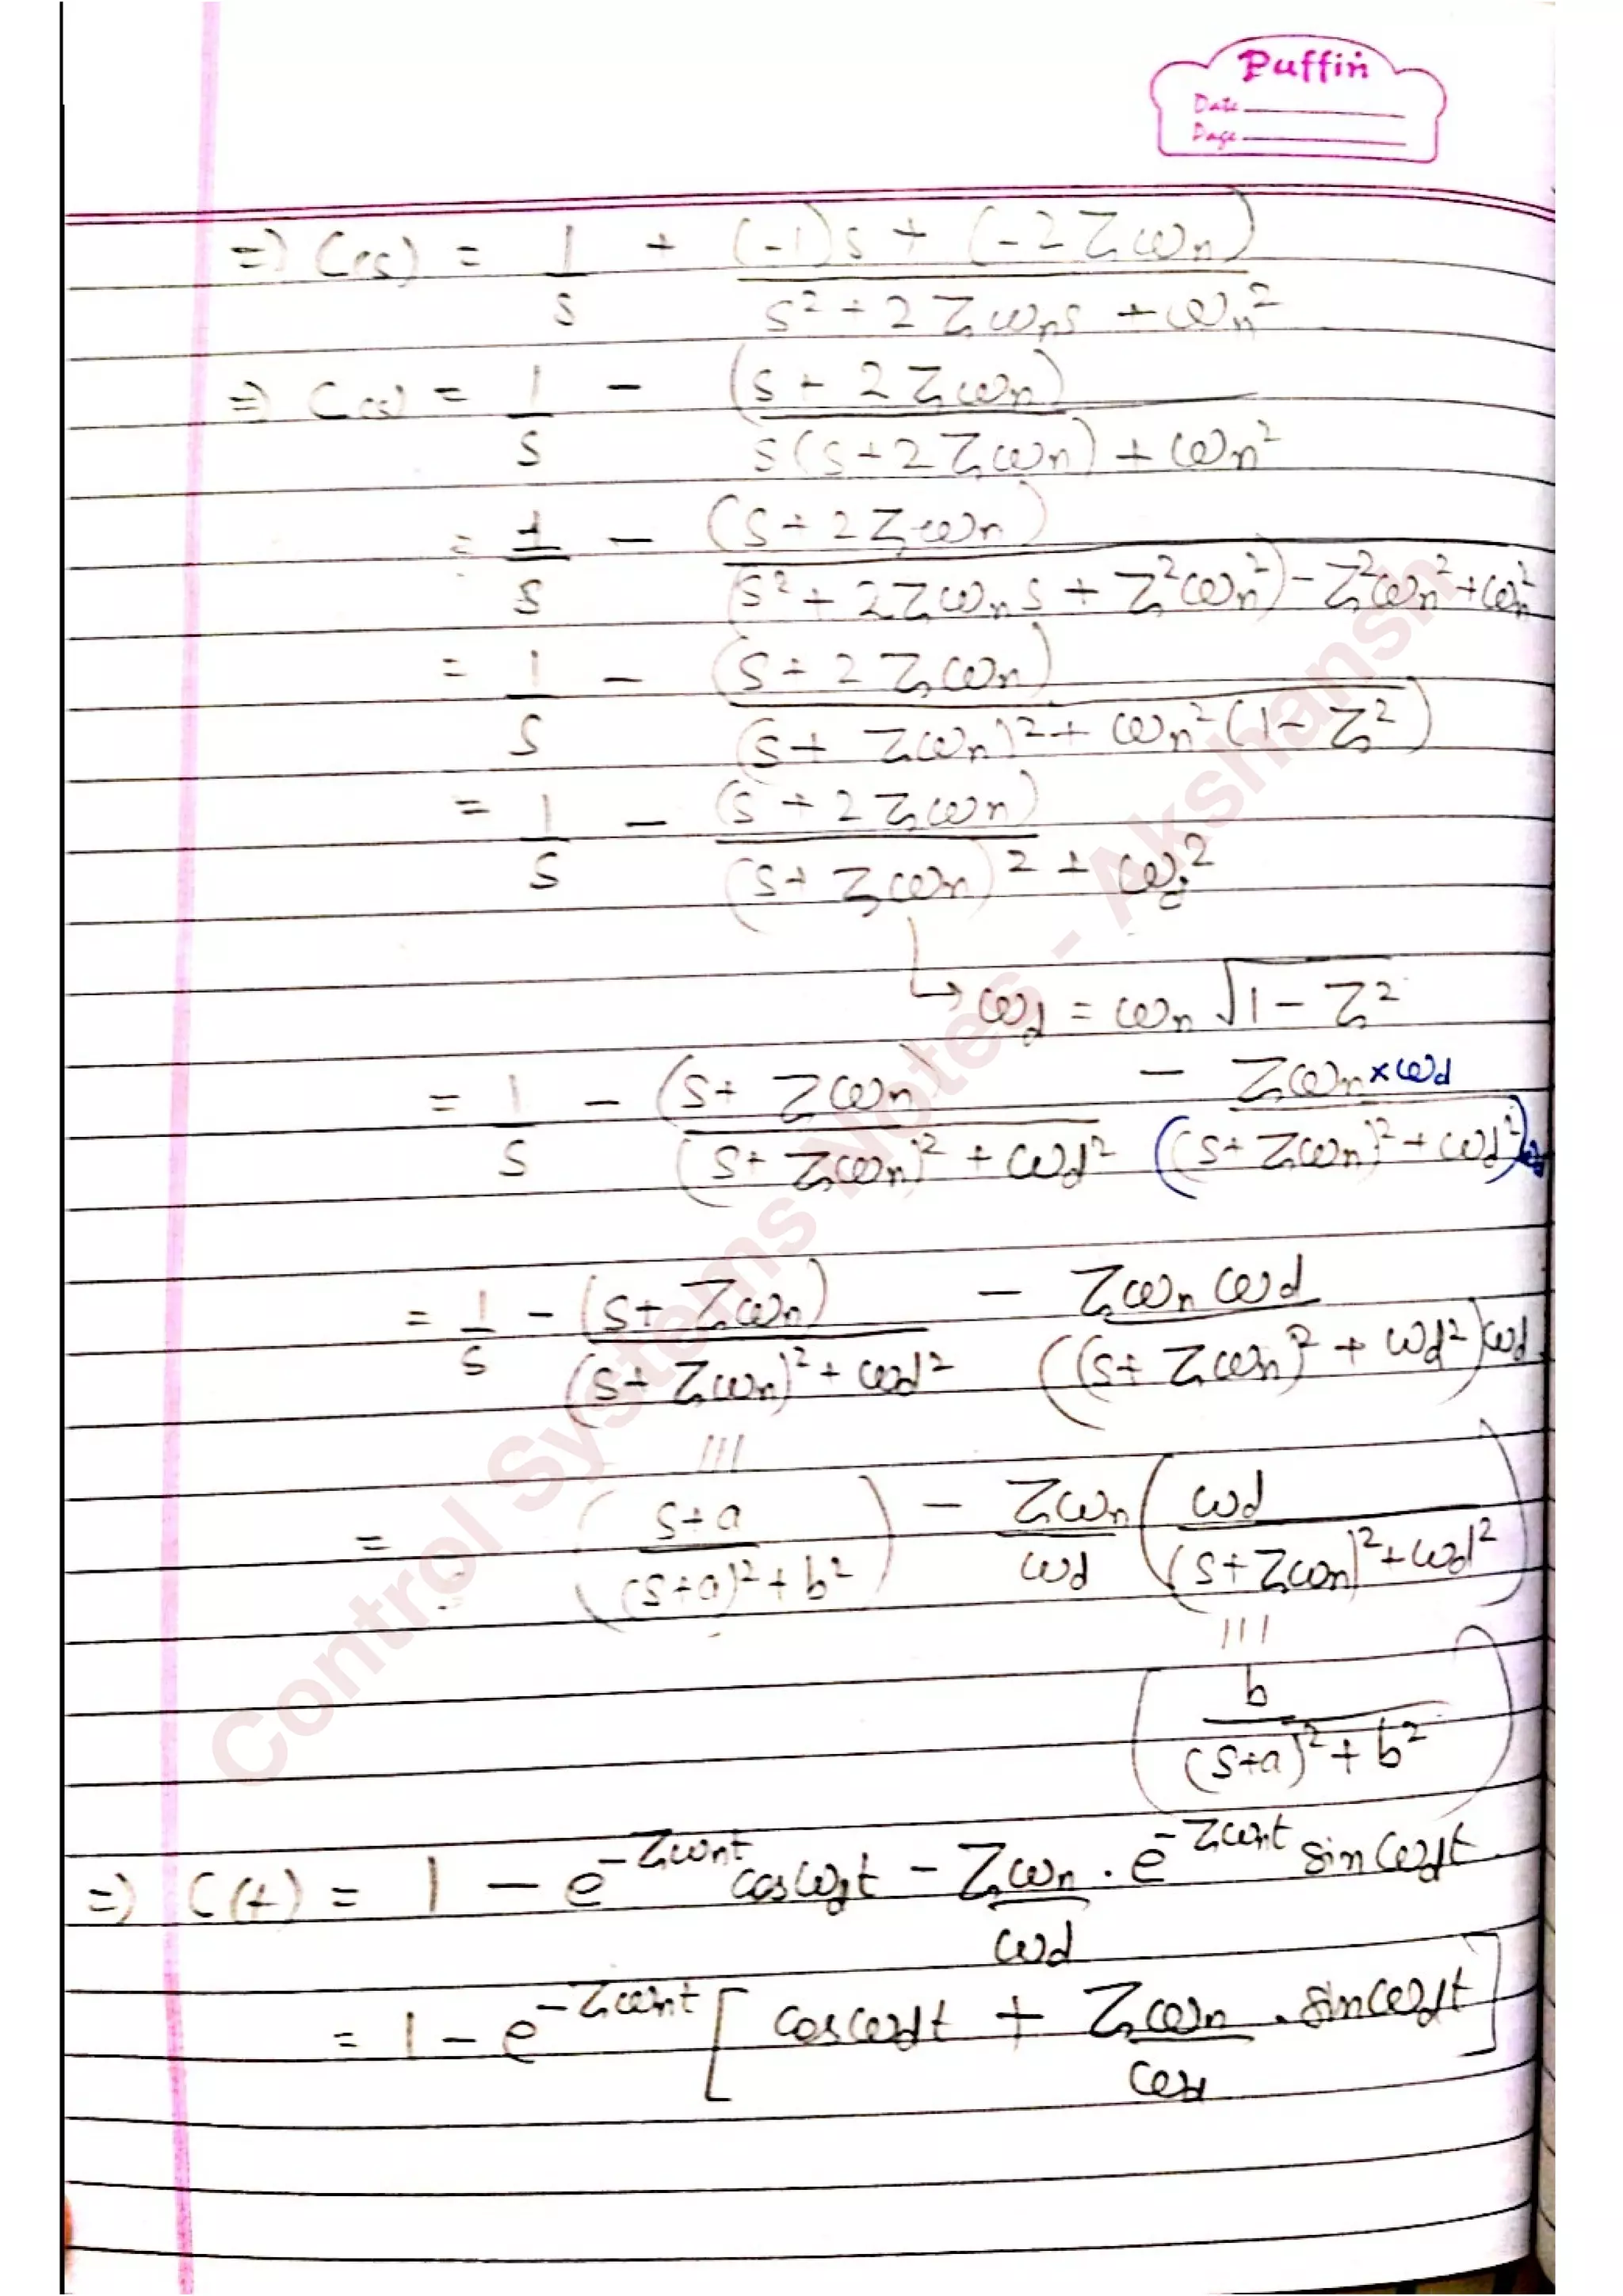 Puffin
Date
Page
=) C(s) = 1/s + ((-1)s + (-2ζωn))/(s² + 2ζωns + ωn²)
=) C(s) = 1/s - (s + 2ζωn)/(s(s + 2ζωn) + ωn²)
= 1/s - (s + 2ζωn)/((s² + 2ζωns + ζ²ωn²) - ζ²ωn² + ωn²)
= 1/s - (s + 2ζωn)/((s + ζωn)² + ωn²(1 - ζ²))
= 1/s - (s + 2ζωn)/((s + ζωn)² + ωd²)
↳ ωd = ωn √(1 - ζ²)
= 1/s - (s + ζωn)/((s + ζωn)² + ωd²) - (ζωn × ωd)/(((s + ζωn)² + ωd²)ωd)
= 1/s - (s + ζωn)/((s + ζωn)² + ωd²) - (ζωn ωd)/(((s + ζωn)² + ωd²)ωd)
|||
= ((s+a)/((s+a)² + b²)) - ζωn/ωd (ωd/((s + ζωn)² + ωd²))
|||
(b/((s+a)² + b²))
=) C(t) = 1 - e^(-ζωnt) cosωdt - ζωn/ωd . e^(-ζωnt) sinωdt
= 1 - e^(-ζωnt) [cosωdt + ζωn/ωd . sinωdt]
Control Systems Notes - Akshansh